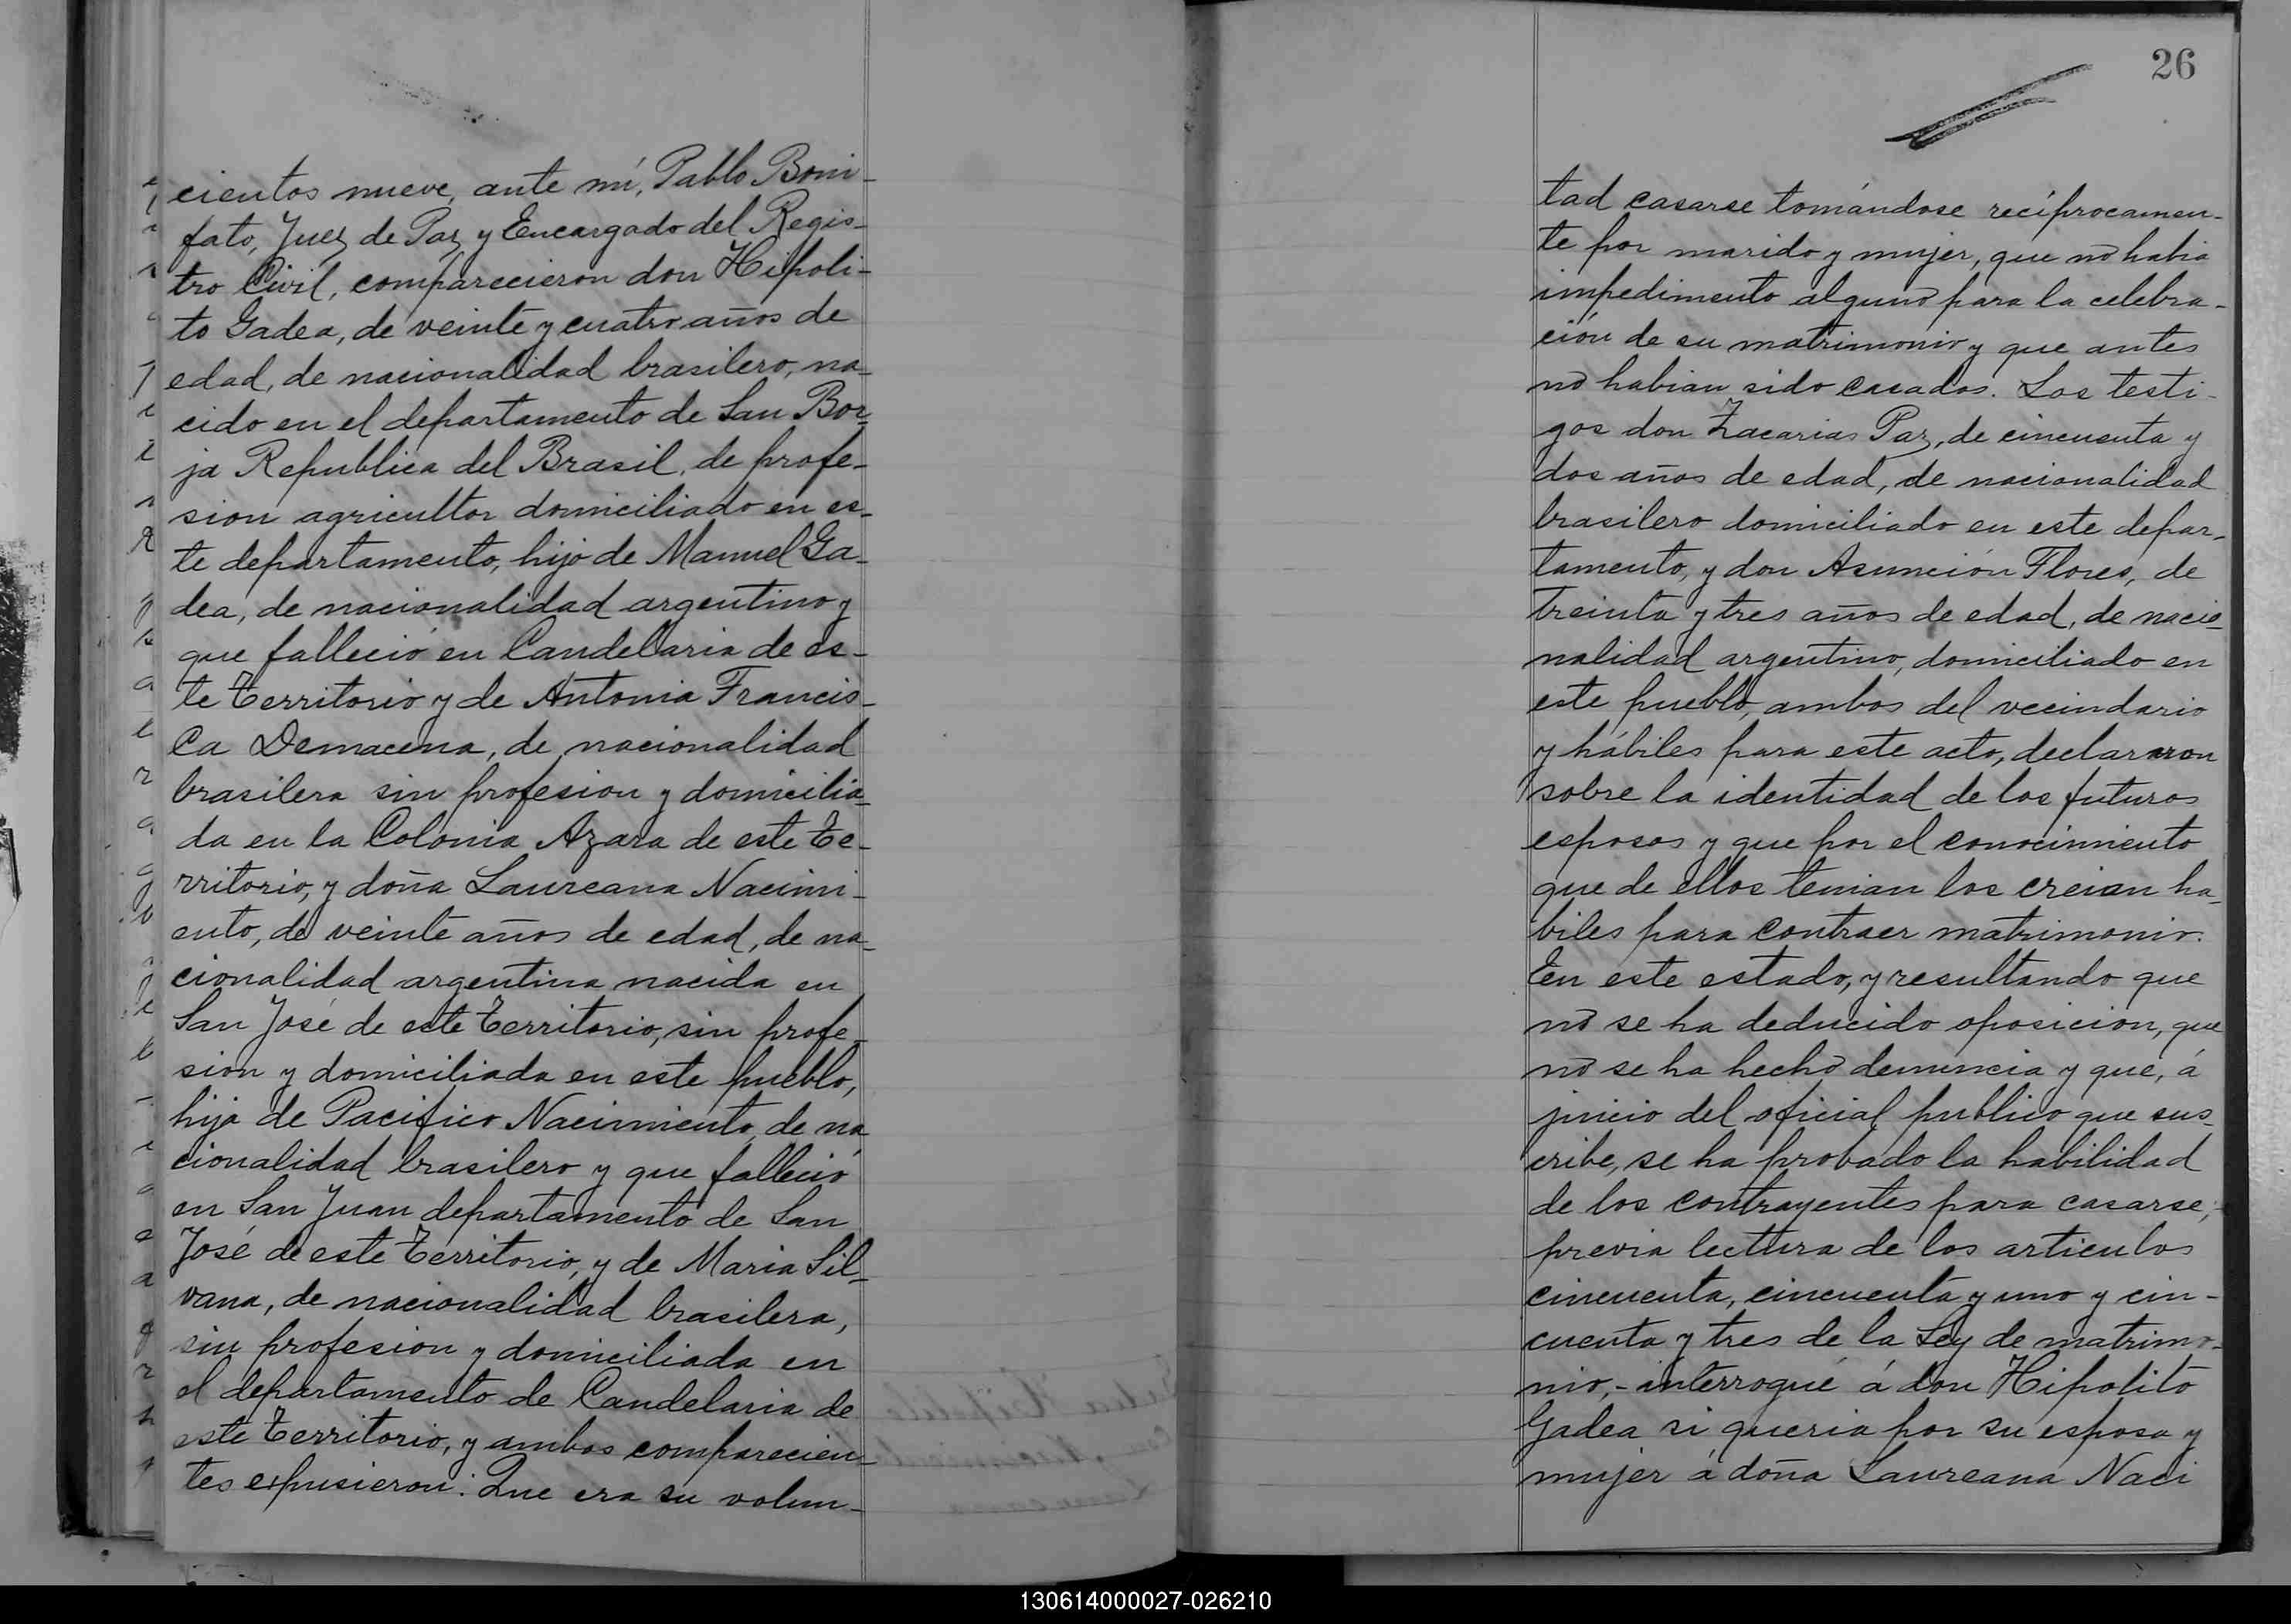 cientos nueve, ante mí, Pablo Boni-
fato, Juez de Paz y Encargado del Regis-
tro Civil, comparecieron don Hipoli-
to Gadea, de veinte y cuatro años de
edad, de nacionalidad brasilero, na-
cido en el departamento de San Bor-
ja Republica del Brasil, de profe-
sion agricultor domiciliado en es-
te departamento, hijo de Manuel Ga-
dea, de nacionalidad argentino y
que falleció en Candelaria de es-
te Territorio y de Antonia Francis-
ca Demacena, de nacionalidad
brasilera sin profesion y domicilia-
da en la Colonia Azara de este Te-
rritorio, y doña Laureana Nacimi-
ento, de veinte años de edad, de na-
cionalidad argentina nacida en
San José de este Territorio, sin profe-
sion y domiciliada en este pueblo,
hija de Pacifico Nacimiento, de na
cionalidad brasilero y que falleció
en San Juan departamento de San
José de este Territorio, y de Maria Sil-
vana, de nacionalidad brasilera,
sin profesion y domiciliada en
el departamento de Candelaria de
este Territorio, y ambos comparecien-
tes expusieron: Que era su volun-
26
tad casarse tomándose recíprocamen-
te por marido y mujer, que no habia
impedimento alguno para la celebra-
ción de su matrimonio y que antes
no habian sido casados. Los testi-
gos don Zacarias Paz, de cincuenta y
dos años de edad, de nacionalidad
brasilero domiciliado en este depar-
tamento, y don Asunción Flores, de
treinta y tres años de edad, de nacio-
nalidad argentino, domiciliado en
este pueblo, ambos del vecindario
y hábiles para este acto, declararon
sobre la identidad de los futuros
esposos y que por el conocimiento
que de ellos tenian los creian ha-
biles para contraer matrimonio.
En este estado, y resultando que
no se ha deducido oposicion, que
no se ha hecho denuncia y que, á
juicio del oficial publico que sus-
cribe, se ha probado la habilidad
de los contrayentes para casarse,
previa lectura de los articulos
cincuenta, cincuenta y uno y cin-
cuenta y tres de la Ley de matrimo-
nio,- interrogué á don Hipolito
Gadea si queria por su esposa y
mujer á doña Laureana Naci
130614000027-026210